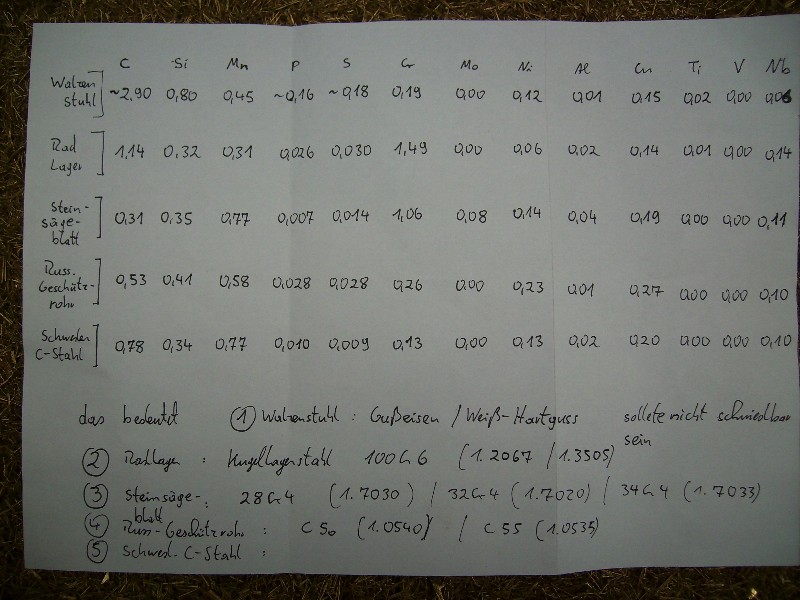 C Si Mn P S Cr Mo Ni Al Cu Ti V Nb
Walzen
stuhl ~2,90 0,80 0,45 ~0,16 ~0,18 0,19 0,00 0,12 0,01 0,15 0,02 0,00 0,06
Rad
Lager 1,14 0,32 0,31 0,026 0,030 1,49 0,00 0,06 0,02 0,14 0,01 0,00 0,14
Stein-
säge-
blatt 0,31 0,35 0,77 0,007 0,014 1,06 0,08 0,14 0,04 0,19 0,00 0,00 0,11
Russ.
Geschütz-
rohr 0,53 0,41 0,58 0,028 0,028 0,26 0,00 0,23 0,01 0,27 0,00 0,00 0,10
Schweden
C-Stahl 0,78 0,34 0,77 0,010 0,009 0,13 0,00 0,13 0,02 0,20 0,00 0,00 0,10
das bedeutet ① Walzenstuhl : Gußeisen / Weiß-Hartguss sollete nicht schmiedbar
sein
② Radlager : Kugellagerstahl 100Cr6 (1.2067 / 1.3505)
③ Steinsäge- : 28Cr4 (1.7030) / 32Cr4 (1.7020) / 34Cr4 (1.7033)
blatt
④ Russ-Geschützrohr : C50 (1.0540) / C55 (1.0535)
⑤ Schwed.-C-Stahl :